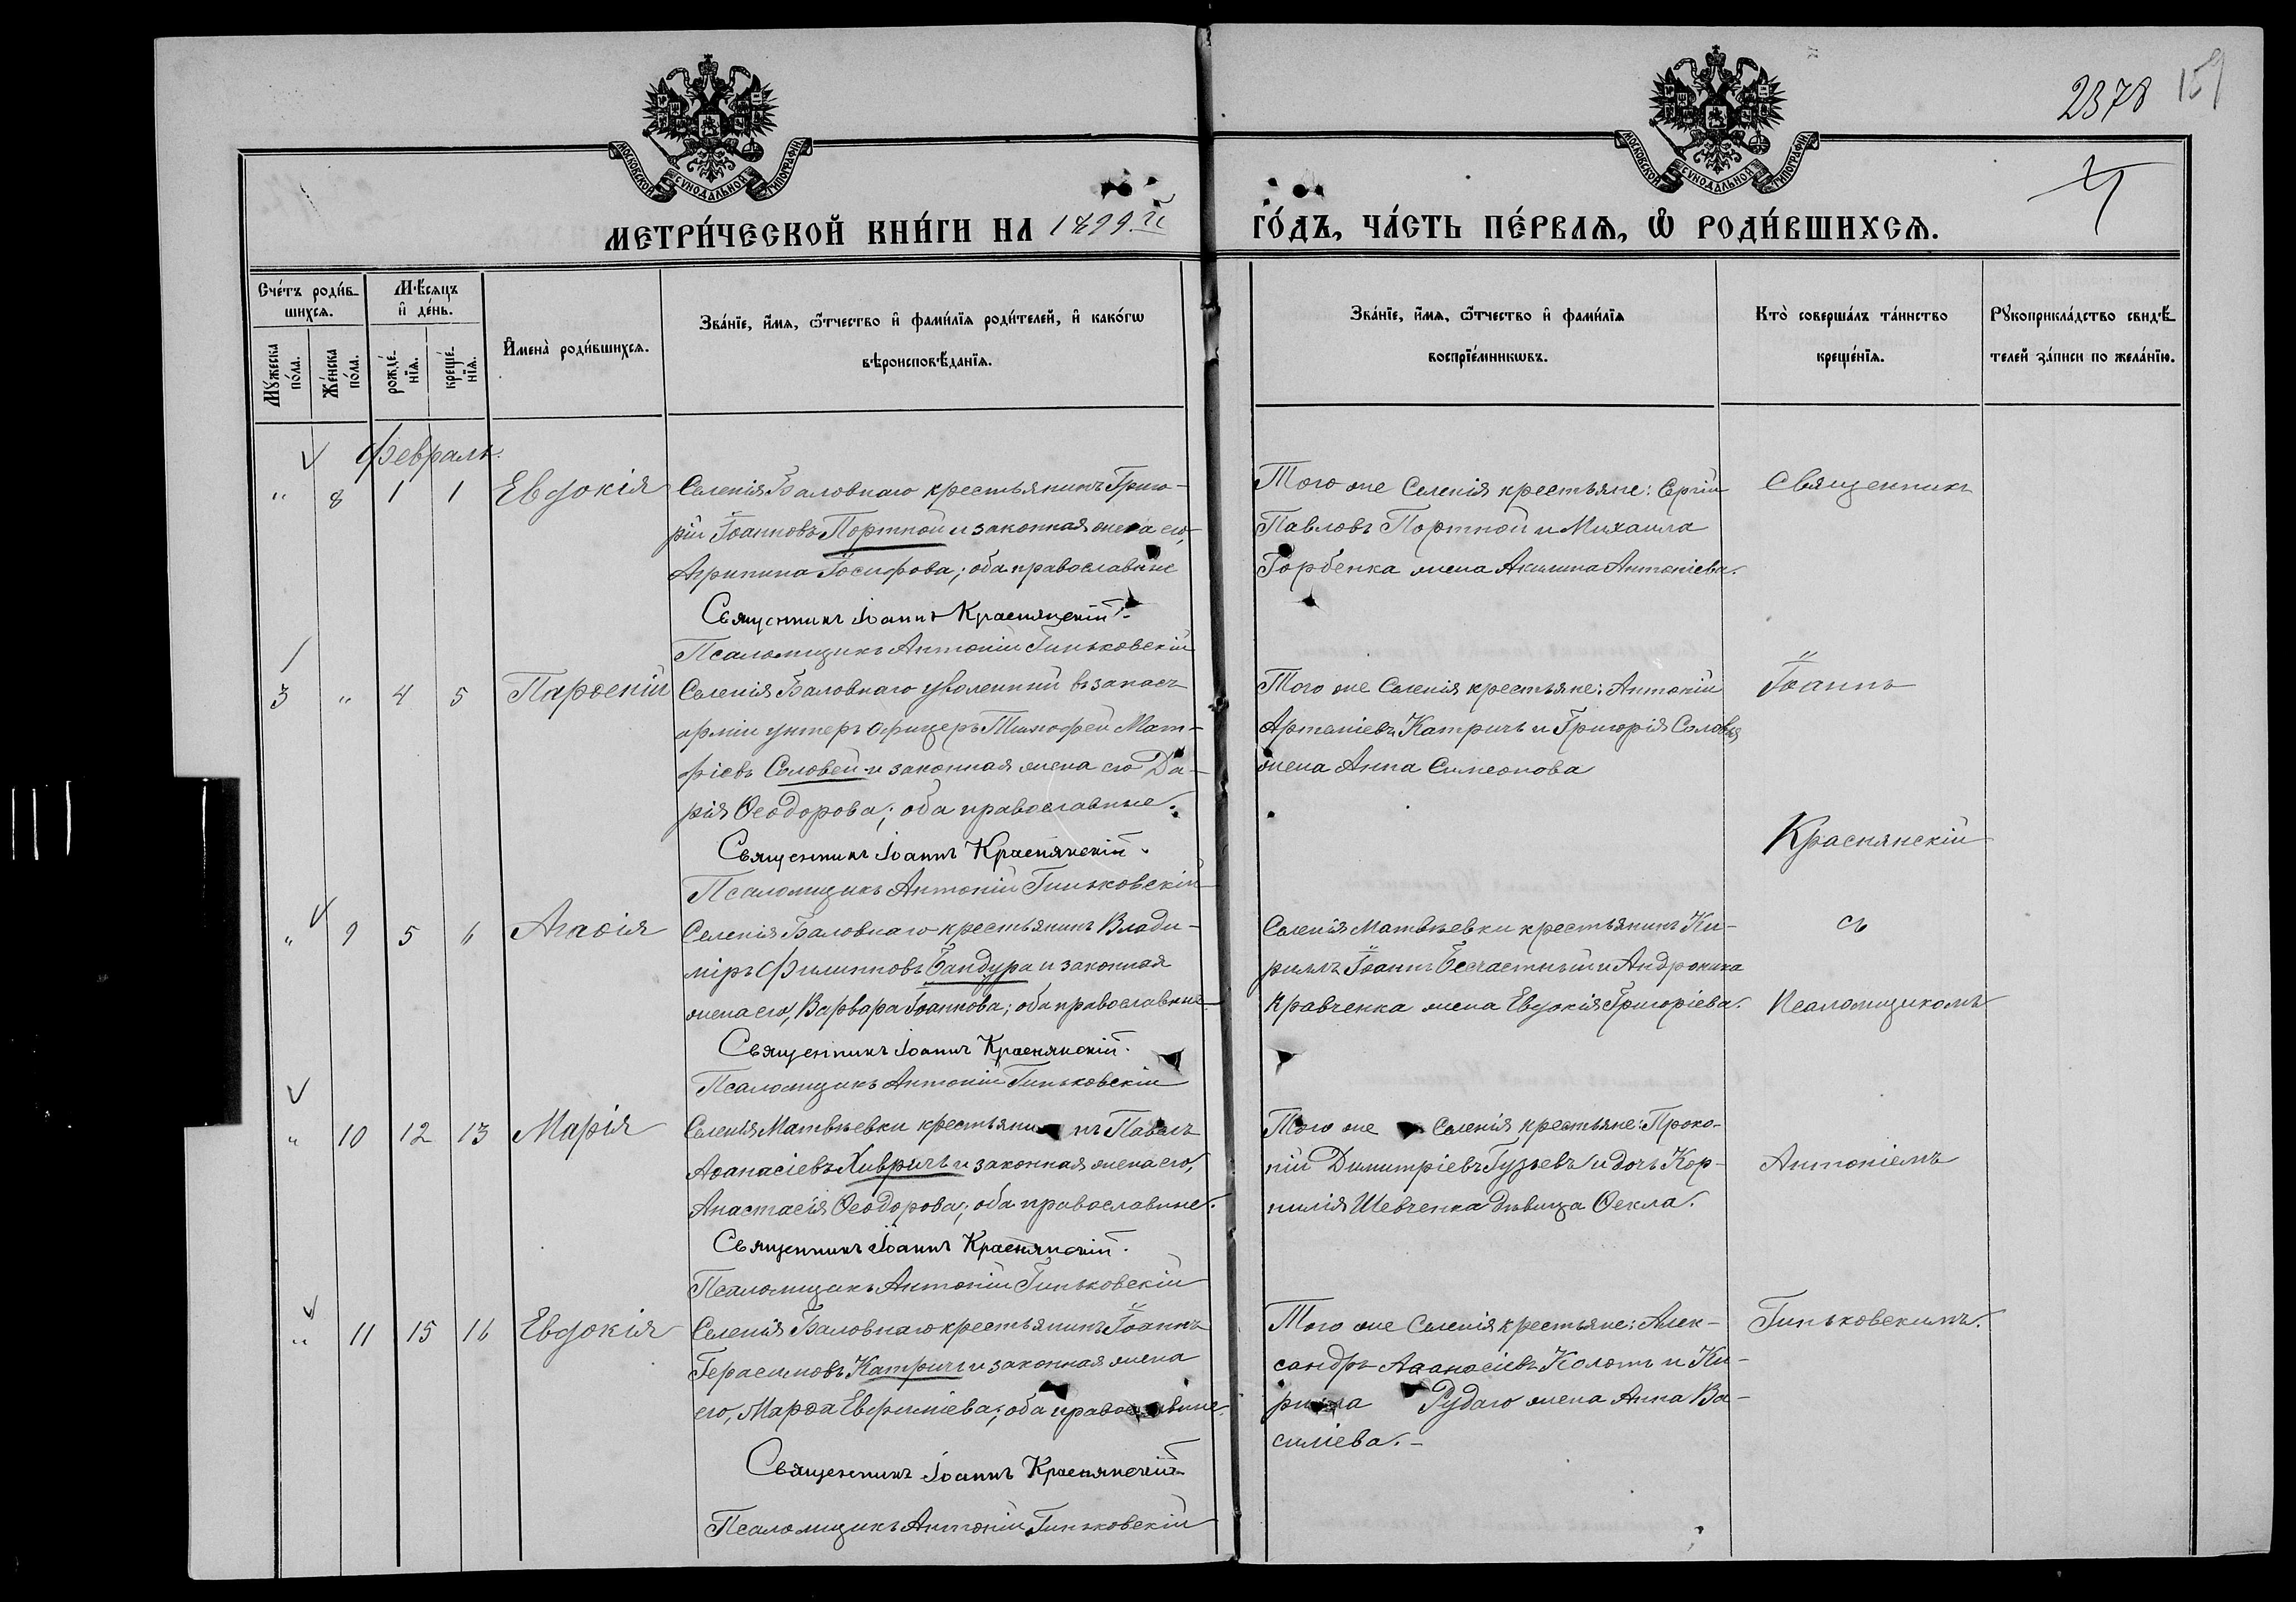 2878 159
МОСКОВСКОЙ СѴНОДАЛЬНОЙ ТИПОГРАФІИ
МОСКОВСКОЙ СѴНОДАЛЬНОЙ ТИПОГРАФІИ
МЕТРИ́ЧЕСКОЙ КНИ́ГИ НА 1899й ГО́ДЪ, ЧА́СТЬ ПЕ́РВАѦ, Ѡ҆ РОДИ́ВШИХСѦ.
Сче́тъ роди́в-
шихсѧ.
Мꙋ́жеска по́ла.
Же́нска по́ла.
Мѣ́сѧцъ
и҆ де́нь.
рожде́-
нїѧ.
креще́-
нїѧ.
И҆мена̀ роди́вшихсѧ.
Зва́нїе, и҆́мѧ, ѻ҆́тчество и҆ фами́лїѧ роди́телей, и҆ како́гѡ
вѣроисповѣ́данїѧ.
Зва́нїе, и҆́мѧ, ѻ҆́тчество и҆ фами́лїѧ
воспрїе́мникѡвъ.
Кто̀ соверша́лъ та́инство
креще́нїѧ.
Рꙋкоприкла́дство свидѣ́-
телей за́писи по жела́нїю.
Февраль.
" 8 1 1 Евдокія
Селенія Баловнаго крестьянинъ Григо-
рій Іоанновъ Портной и законная жена его,
Агрипина Іосифова; оба православные
Священникъ Іоаннъ Краснянскій.
Псаломщикъ Антоній Гиньковскій
Того же Селенія крестьяне: Сергій
Павловъ Портной и Михаила
Горбенка жена Акилина Антоніева.
Священникъ
3 " 4 5 Парѳеній
Селенія Баловнаго уволенный въ запасъ
арміи унтеръ офицеръ Тимофей Мат-
фіевъ Соловей и законная жена его Да-
рія Ѳеодорова; оба православные.
Священникъ Іоаннъ Краснянскій.
Псаломщикъ Антоній Гиньковскій
Того же Селенія крестьяне: Антоній
Артеміевъ Катричъ и Григорія Соловья
жена Анна Симеонова
Іоаннъ
Краснянскій
" 9 5 6 Агаѳія
Селенія Баловнаго крестьянинъ Влади-
міръ Филипповъ Бандура и законная
жена его, Варвара Іоаннова; оба православные
Священникъ Іоаннъ Краснянскій.
Псаломщикъ Антоній Гиньковскій
Селенія Матвѣевки крестьянинъ Ки-
риллъ Іоаннъ Бесчастный и Андроника
Кравченка жена Евдокія Григоріева.
съ
Псаломщикомъ
" 10 12 13 Марія
Селенія Матвѣевки крестьянинъ Павелъ
Аѳанасіевъ Хивричъ и законная жена его,
Анастасія Ѳеодорова; оба православные.
Священникъ Іоаннъ Краснянскій.
Псаломщикъ Антоній Гиньковскій
Того же Селенія крестьяне: Проко-
пій Димитріевъ Гузьевъ и дочь Кор-
нилія Шевченка дѣвица Ѳекла.
Антоніемъ
" 11 15 16 Евдокія
Селенія Баловнаго крестьянинъ Іоаннъ
Герасимовъ Катричъ и законная жена
его, Марѳа Евфиміева; оба православные.
Священникъ Іоаннъ Краснянскій
Псаломщикъ Антоній Гиньковскій
Того же Селенія крестьяне: Алек-
сандръ Аѳанасіевъ Коломъ и Ки-
рилла Рудаго жена Анна Ва-
силіева.-
Гиньковскимъ.